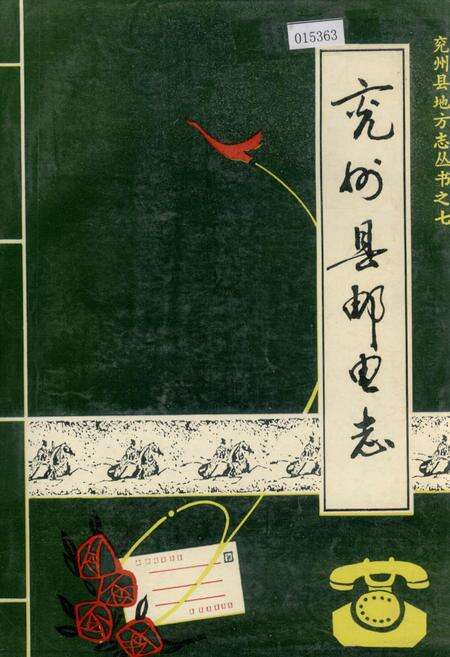 015363
兖州县地方志丛书之七
兖州县邮电志